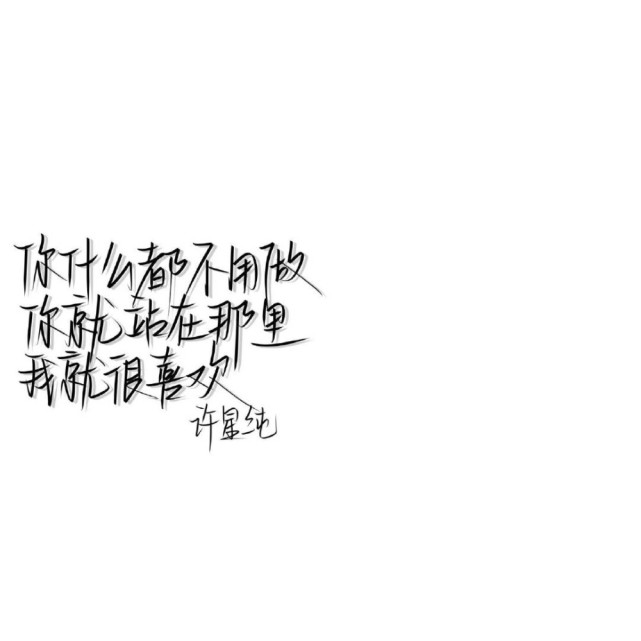 你什么都不用做
你就站在那里
我就很喜欢
许星纯